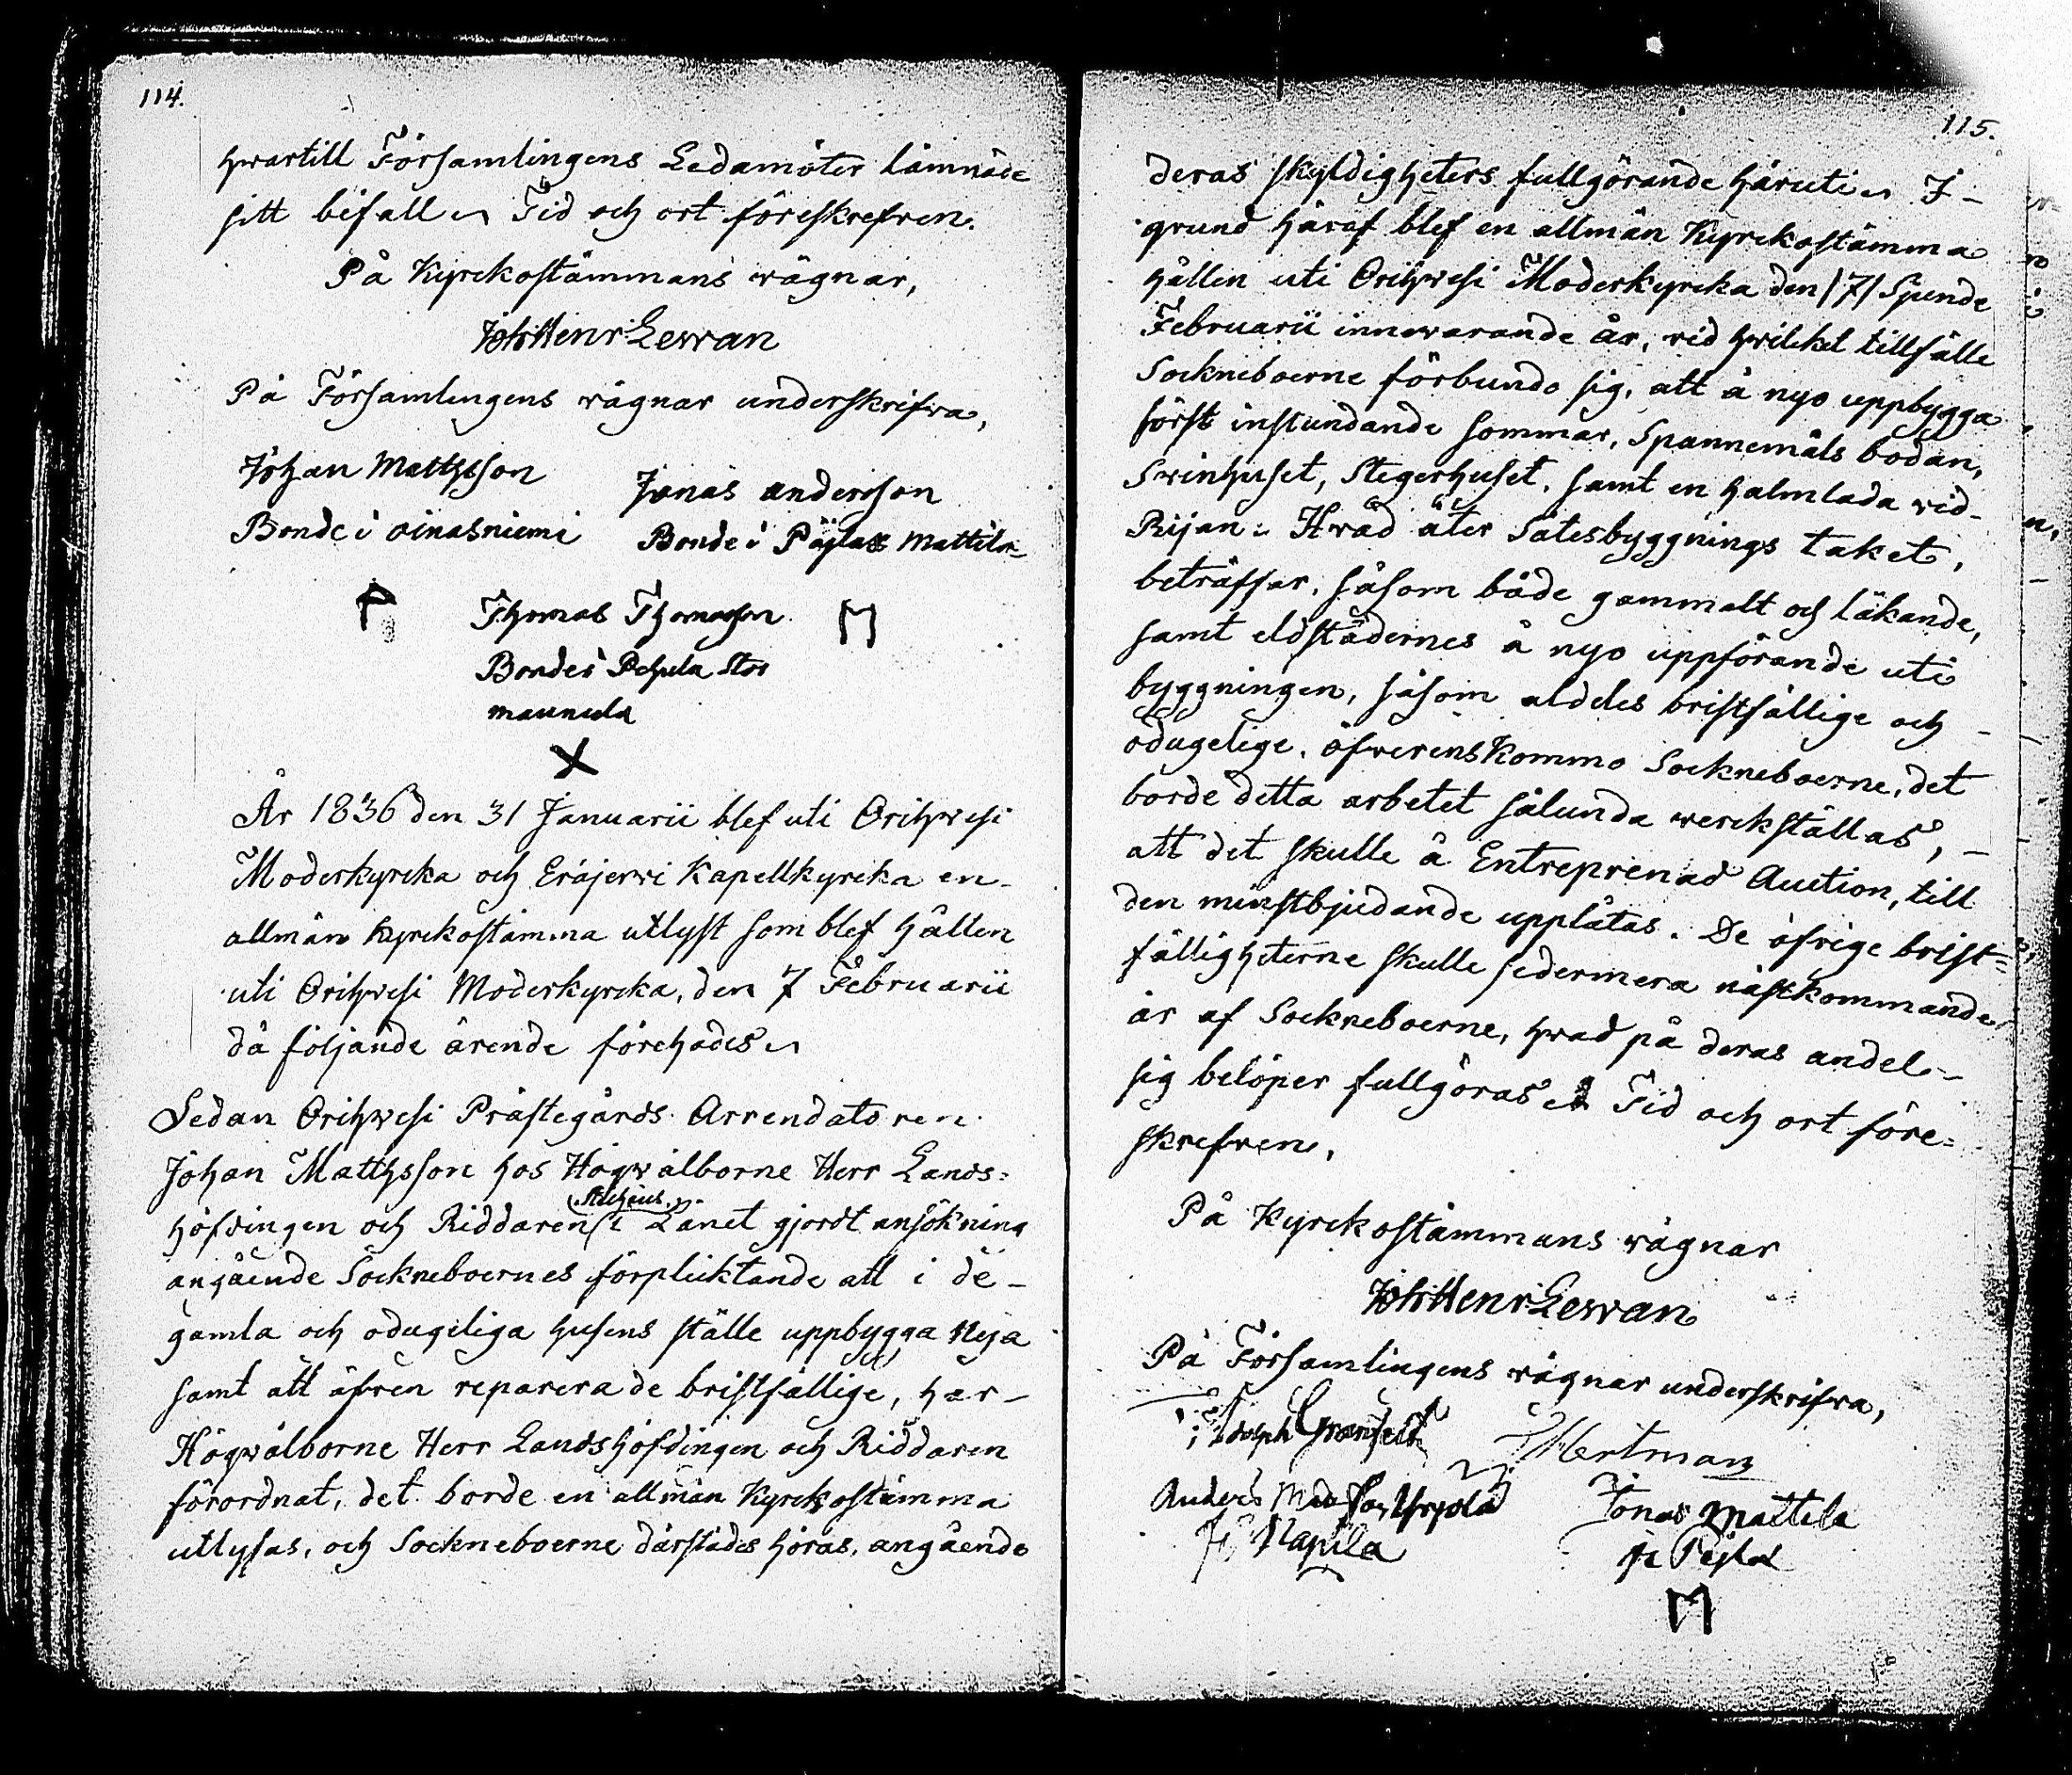 114.
hwartill Församlingens Ledamöter lämnade
sitt bifall Tid och ort föreskrefven.
På Kyrckostämmans wägnar,
Joh Henr Lewan
På Församlingens wägnar underskrifva,
Johan Mattsson
Bonde i Oinasniemi
Jonas anderson
Bonde i Päjlax Mattila
Thomas Thomasson
Bonde i Pehula Stor
maunula
År 1836 den 31 Januarii blef uti Orihwesi
Moderkyrcka och Eräjerwi Kapellkyrcka en
allmän kyrckostämma utlyst som blef hållen
uti Orihwesi Moderkyrcka, den 7 Februarii
då följande ärende förehades
Sedan Orihwesi Prästegårds Arrendatoren
Johan Matthsson hos Högwälborne Herr Lands=
höfdingen och Riddaren i Länet gjordt ansökning
angående Sockneboernes förplicktande att i de
gamla och odugeliga husens ställe uppbygga Nya
samt att äfven reparera de bristfällige, har
Högwälborne Herr Landshöfdingen och Riddaren
förordnat, det borde en allmän Kyrckostämma
utlysas, och Sockneboerne därstädes höras, angående
115.
deras skyldigheters fullgörande häruti I
grund häraf blef en allmän Kyrckostämma
hållen uti Orihwesi Moderkyrcka den /7/ Sjunde
Februarii innewarande år, wid hwilcket tillfälle
Sockneboerne förbundo sig, att å nyo uppbygga
först instundande sommar, Spannemåls bodan,
Swinhuset, Stegerhuset, samt en halmlada wid
Rijan: Hwad åter Sätesbyggnings taket,
beträffar, såsom både gammalt och läkande,
samt eldstädernes å nyo uppförande uti
byggningen, såsom aldeles bristfällige och
odugelige, öfwerenskommo Sockneboerne, det
borde detta arbetet sålunda werckställas,
att det skulle å Entreprenad Auction, till
den minstbjudande upplåtas. De öfrige brist=
fälligheterne skulle sedermera nästkommande
år af Sockneboerne, hwad på deras andel
sig belöper fullgöras Tid och ort före=
skrefven,
På Kyrckostämmans wägnar
Joh Henr Lewan
På Församlingens wägnar underskrifva,
Adolph Granfelt
Hertman
Anders
Napila
Jonas Mattila
Päjlax